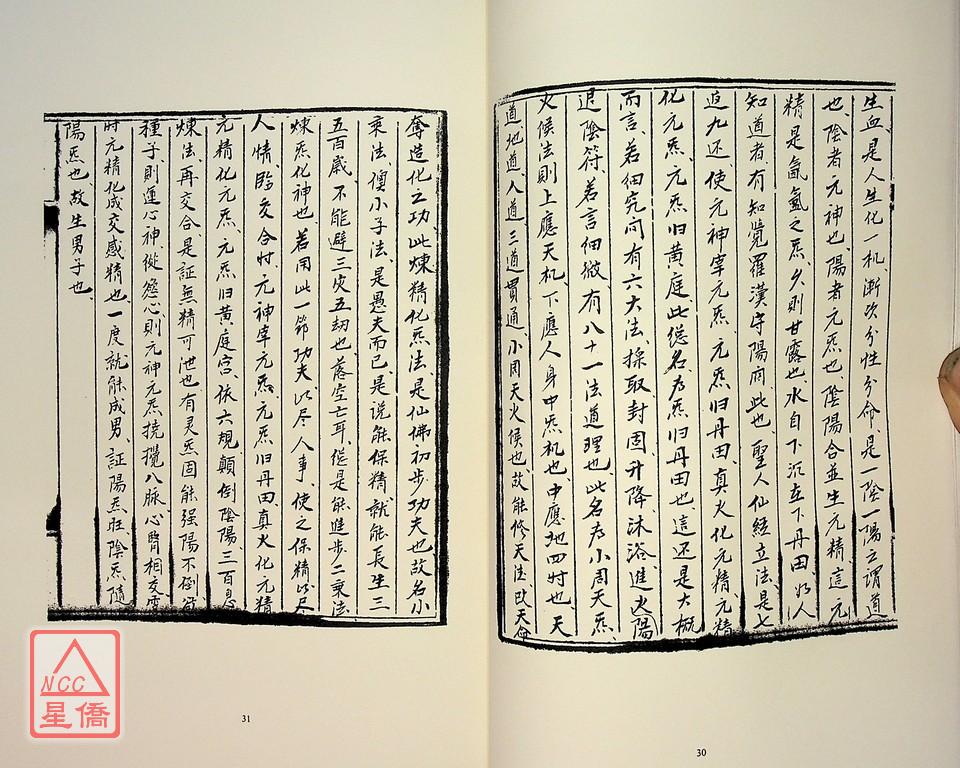 生血是人生化一机漸次分性分命是一陰一陽之謂道
也、陰者元神也、陽者元炁也陰陽合並生元精、這元
精是氤氲之炁、久則甘露也、水自下沉在下丹田、凡人
知道者有知覚羅漢守陽府此也、聖人仙経立法、是七
返九还、使元神宰元炁、元炁归丹田、真火化元精、元精
化元炁、元炁归黄庭、此总名为炁归丹田也、這还是大概
而言、若细究问有六大法、採取封固升降沐浴、進火陽
退陰符、若言细微、有八十一法道理也、此名为小周天炁、
火候法則上應天机、下應人身中炁机也、中應地四时也、天
道地道人道、三道貫通、小周天火候也、故能修天法、改天命
奪造化之功、此煉精化炁法、是仙佛初步功夫也、故名小
乘法、僂小子法、是愚夫而已、是说能保精就能長生三
五百歳、不能避三灾五劫也、落空亡耳、但是能進步二乘法
煉炁化神也、若用此一節功夫、以尽人事、使之保精、以尽
人情、臨交合时、元神宰元炁、元炁归丹田、真火化元精
元精化元炁、元炁归黄庭宫、依六規顛倒陰陽、三百息
煉法、再交合、是証無精可泄也、有灵炁固能强陽不倒、
種子、則運心神、從慾心則元神元炁撓攪八脉、心腎相交
时、元精化成交感精也、一度就能成男、証陽炁旺、陰炁隨
陽炁也、故生男子也、
31
30
NCC
星僑